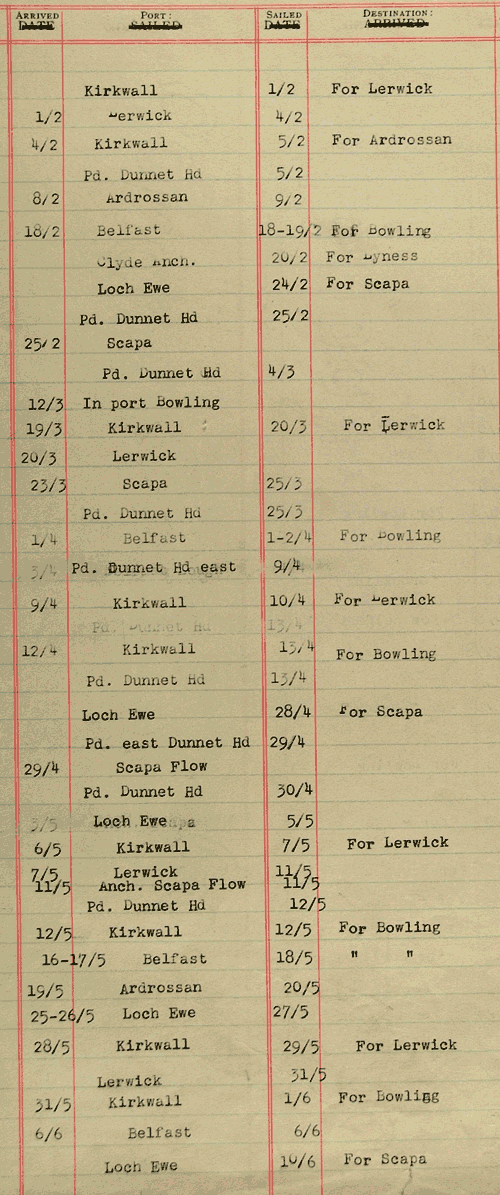 ARRIVED PORT: SAILED DESTINATION:
DATE SAILED DATE ARRIVED
Kirkwall 1/2 For Lerwick
1/2 Lerwick 4/2
4/2 Kirkwall 5/2 For Ardrossan
Pd. Dunnet Hd 5/2
8/2 Ardrossan 9/2
18/2 Belfast 18-19/2 For Bowling
Clyde Anch. 20/2 For Lyness
Loch Ewe 24/2 For Scapa
Pd. Dunnet Hd 25/2
25/2 Scapa
Pd. Dunnet Hd 4/3
12/3 In port Bowling
19/3 Kirkwall 20/3 For Lerwick
20/3 Lerwick
23/3 Scapa 25/3
Pd. Dunnet Hd 25/3
1/4 Belfast 1-2/4 For Bowling
3/4 Pd. Dunnet Hd east 9/4
9/4 Kirkwall 10/4 For Lerwick
Pd. Dunnet Hd 13/4
12/4 Kirkwall 13/4 For Bowling
Pd. Dunnet Hd 13/4
Loch Ewe 28/4 For Scapa
Pd. east Dunnet Hd 29/4
29/4 Scapa Flow
Pd. Dunnet Hd 30/4
3/5 Loch Ewe 5/5
6/5 Kirkwall 7/5 For Lerwick
7/5 Lerwick 11/5
11/5 Anch. Scapa Flow 11/5
Pd. Dunnet Hd 12/5
12/5 Kirkwall 12/5 For Bowling
16-17/5 Belfast 18/5 " "
19/5 Ardrossan 20/5
25-26/5 Loch Ewe 27/5
28/5 Kirkwall 29/5 For Lerwick
Lerwick 31/5
31/5 Kirkwall 1/6 For Bowling
6/6 Belfast 6/6
Loch Ewe 10/6 For Scapa